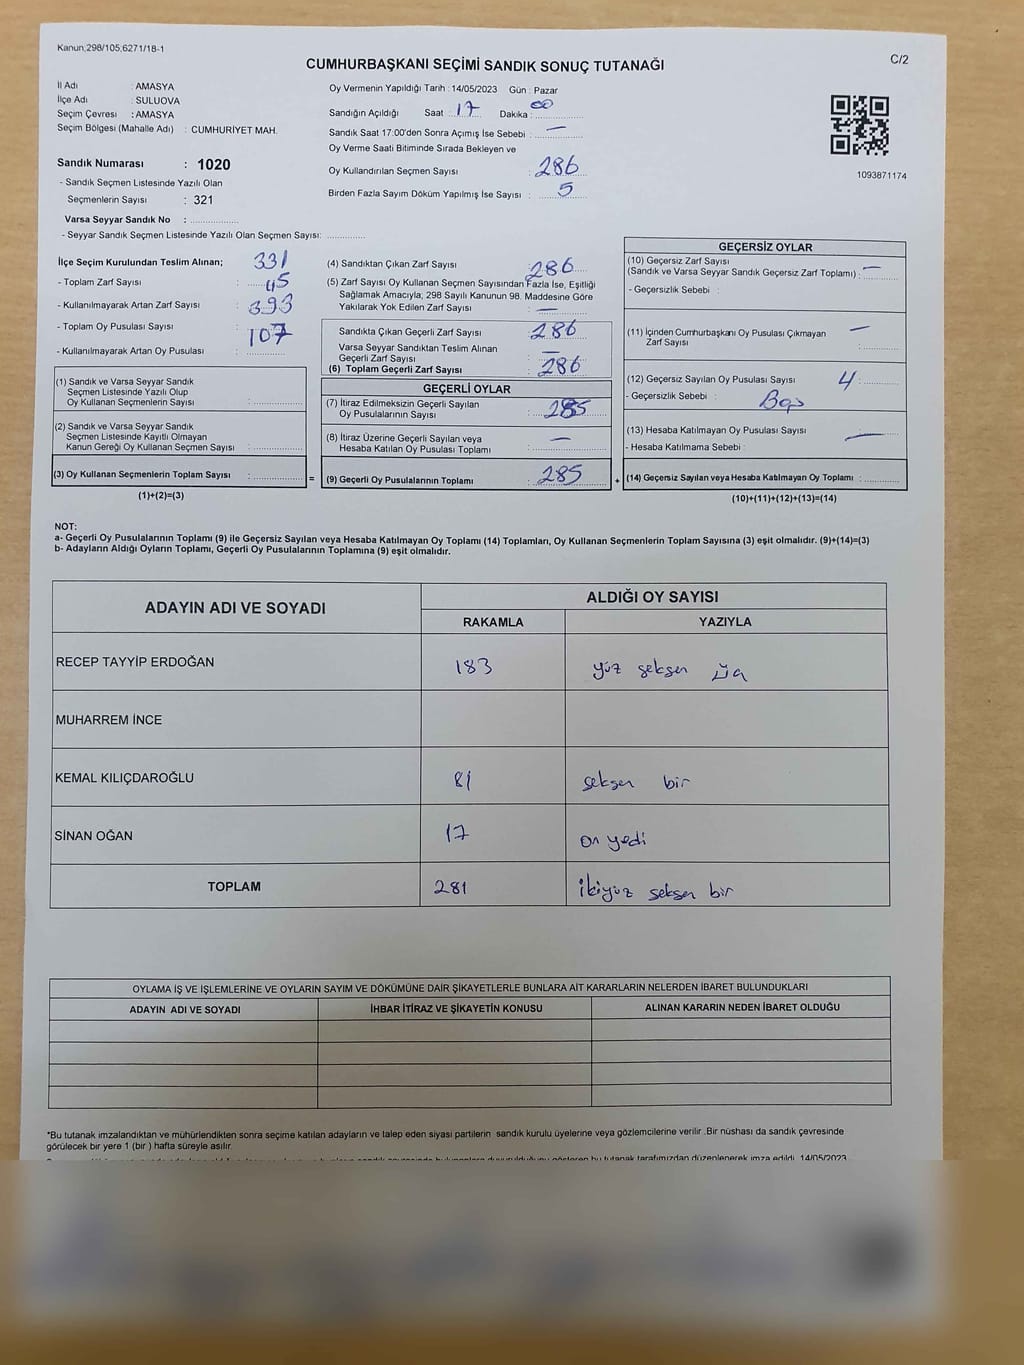 Kanun;298/105,6271/18-1
C/2
CUMHURBAŞKANI SEÇİMİ SANDIK SONUÇ TUTANAĞI
İl Adı : AMASYA
İlçe Adı : SULUOVA
Seçim Çevresi : AMASYA
Seçim Bölgesi (Mahalle Adı) : CUMHURİYET MAH.
Sandık Numarası : 1020
- Sandık Seçmen Listesinde Yazılı Olan
Seçmenlerin Sayısı : 321
Varsa Seyyar Sandık No :
- Seyyar Sandık Seçmen Listesinde Yazılı Olan Seçmen Sayısı:
Oy Vermenin Yapıldığı Tarih : 14/05/2023 Gün : Pazar
Sandığın Açıldığı Saat : 17 Dakika : 00
Sandık Saat 17:00'den Sonra Açımış İse Sebebi : —
Oy Verme Saati Bitiminde Sırada Bekleyen ve
Oy Kullandırılan Seçmen Sayısı : 286
Birden Fazla Sayım Döküm Yapılmış İse Sayısı : 5
1093871174
İlçe Seçim Kurulundan Teslim Alınan; 331
- Toplam Zarf Sayısı : 45
- Kullanılmayarak Artan Zarf Sayısı : 393
- Toplam Oy Pusulası Sayısı : 107
- Kullanılmayarak Artan Oy Pusulası :
(1) Sandık ve Varsa Seyyar Sandık
Seçmen Listesinde Yazılı Olup
Oy Kullanan Seçmenlerin Sayısı :
(2) Sandık ve Varsa Seyyar Sandık
Seçmen Listesinde Kayıtlı Olmayan
Kanun Gereği Oy Kullanan Seçmen Sayısı :
(3) Oy Kullanan Seçmenlerin Toplam Sayısı : =
(1)+(2)=(3)
(4) Sandıktan Çıkan Zarf Sayısı : 286
(5) Zarf Sayısı Oy Kullanan Seçmen Sayısından Fazla İse, Eşitliği
Sağlamak Amacıyla; 298 Sayılı Kanunun 98. Maddesine Göre
Yakılarak Yok Edilen Zarf Sayısı : —
Sandıkta Çıkan Geçerli Zarf Sayısı : 286
Varsa Seyyar Sandıktan Teslim Alınan
Geçerli Zarf Sayısı : —
(6) Toplam Geçerli Zarf Sayısı : 286
GEÇERLİ OYLAR
(7) İtiraz Edilmeksizin Geçerli Sayılan
Oy Pusulalarının Sayısı : 285
(8) İtiraz Üzerine Geçerli Sayılan veya
Hesaba Katılan Oy Pusulası Toplamı : —
(9) Geçerli Oy Pusulalarının Toplamı : 285 +
GEÇERSİZ OYLAR
(10) Geçersiz Zarf Sayısı
(Sandık ve Varsa Seyyar Sandık Geçersiz Zarf Toplamı) : —
- Geçersizlik Sebebi :
(11) İçinden Cumhurbaşkanı Oy Pusulası Çıkmayan —
Zarf Sayısı :
(12) Geçersiz Sayılan Oy Pusulası Sayısı 4 :
- Geçersizlik Sebebi :
(13) Hesaba Katılmayan Oy Pusulası Sayısı : —
- Hesaba Katılmama Sebebi :
(14) Geçersiz Sayılan veya Hesaba Katılmayan Oy Toplamı :
(10)+(11)+(12)+(13)=(14)
NOT:
a- Geçerli Oy Pusulalarının Toplamı (9) ile Geçersiz Sayılan veya Hesaba Katılmayan Oy Toplamı (14) Toplamları, Oy Kullanan Seçmenlerin Toplam Sayısına (3) eşit olmalıdır. (9)+(14)=(3)
b- Adayların Aldığı Oyların Toplamı, Geçerli Oy Pusulalarının Toplamına (9) eşit olmalıdır.
ADAYIN ADI VE SOYADI
ALDIĞI OY SAYISI
RAKAMLA YAZIYLA
RECEP TAYYİP ERDOĞAN 183 yüz seksen üç
MUHARREM İNCE
KEMAL KILIÇDAROĞLU 81 seksen bir
SİNAN OĞAN 17 on yedi
TOPLAM 281 ikiyüz seksen bir
OYLAMA İŞ VE İŞLEMLERİNE VE OYLARIN SAYIM VE DÖKÜMÜNE DAİR ŞİKAYETLERLE BUNLARA AİT KARARLARIN NELERDEN İBARET BULUNDUKLARI
ADAYIN ADI VE SOYADI İHBAR İTİRAZ VE ŞİKAYETİN KONUSU ALINAN KARARIN NEDEN İBARET OLDUĞU
*Bu tutanak imzalandıktan ve mühürlendikten sonra seçime katılan adayların ve talep eden siyasi partilerin sandık kurulu üyelerine veya gözlemcilerine verilir .Bir nüshası da sandık çevresinde
görülecek bir yere 1 (bir ) hafta süreyle asılır.
tutanak tarafımızdan düzenlenerek imza edildi. 14/05/2023